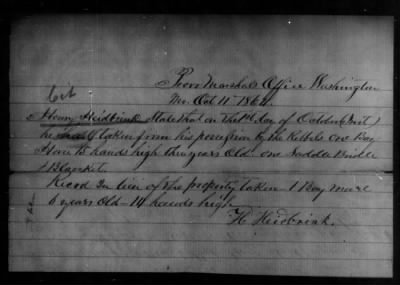 Oct
Provo Marshals Office Washington
Mo. Oct 11th 1864.
Henry Heidbrink States that on the 1st day of October
he had taken from his possession by the Rebels one Bay
Horse 15 hands high three years Old. one Saddle Bridle
& Blanket.
Recvd In lieu of the property taken 1 Bay mare
6 years Old - 14 hands high
H. Heidbrink.